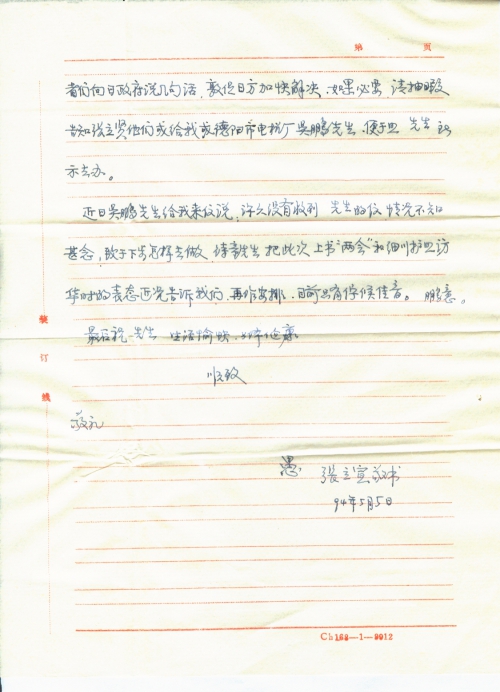 第 页
者们向日政府说几句话，敦促日方加快解决。如果必要，请抽暇
告知张立贤他们或给我或德阳市电机厂吴鹏先生，便于照 先生
示去办。
近日吴鹏先生给我来信说，许久没有收到 先生的信 情况不知
甚念，致于下步怎样去做，请童先生把此次上书“两会”和细川护熙访
华时的表态近况告诉我们，再作安排。目前只有停候佳音。鹏意。
最后祝 先生 生活愉快，
顺致
敬礼
愚 张立宪 敬书
94年5月5日
装
订
线
Ch 162—1—9012